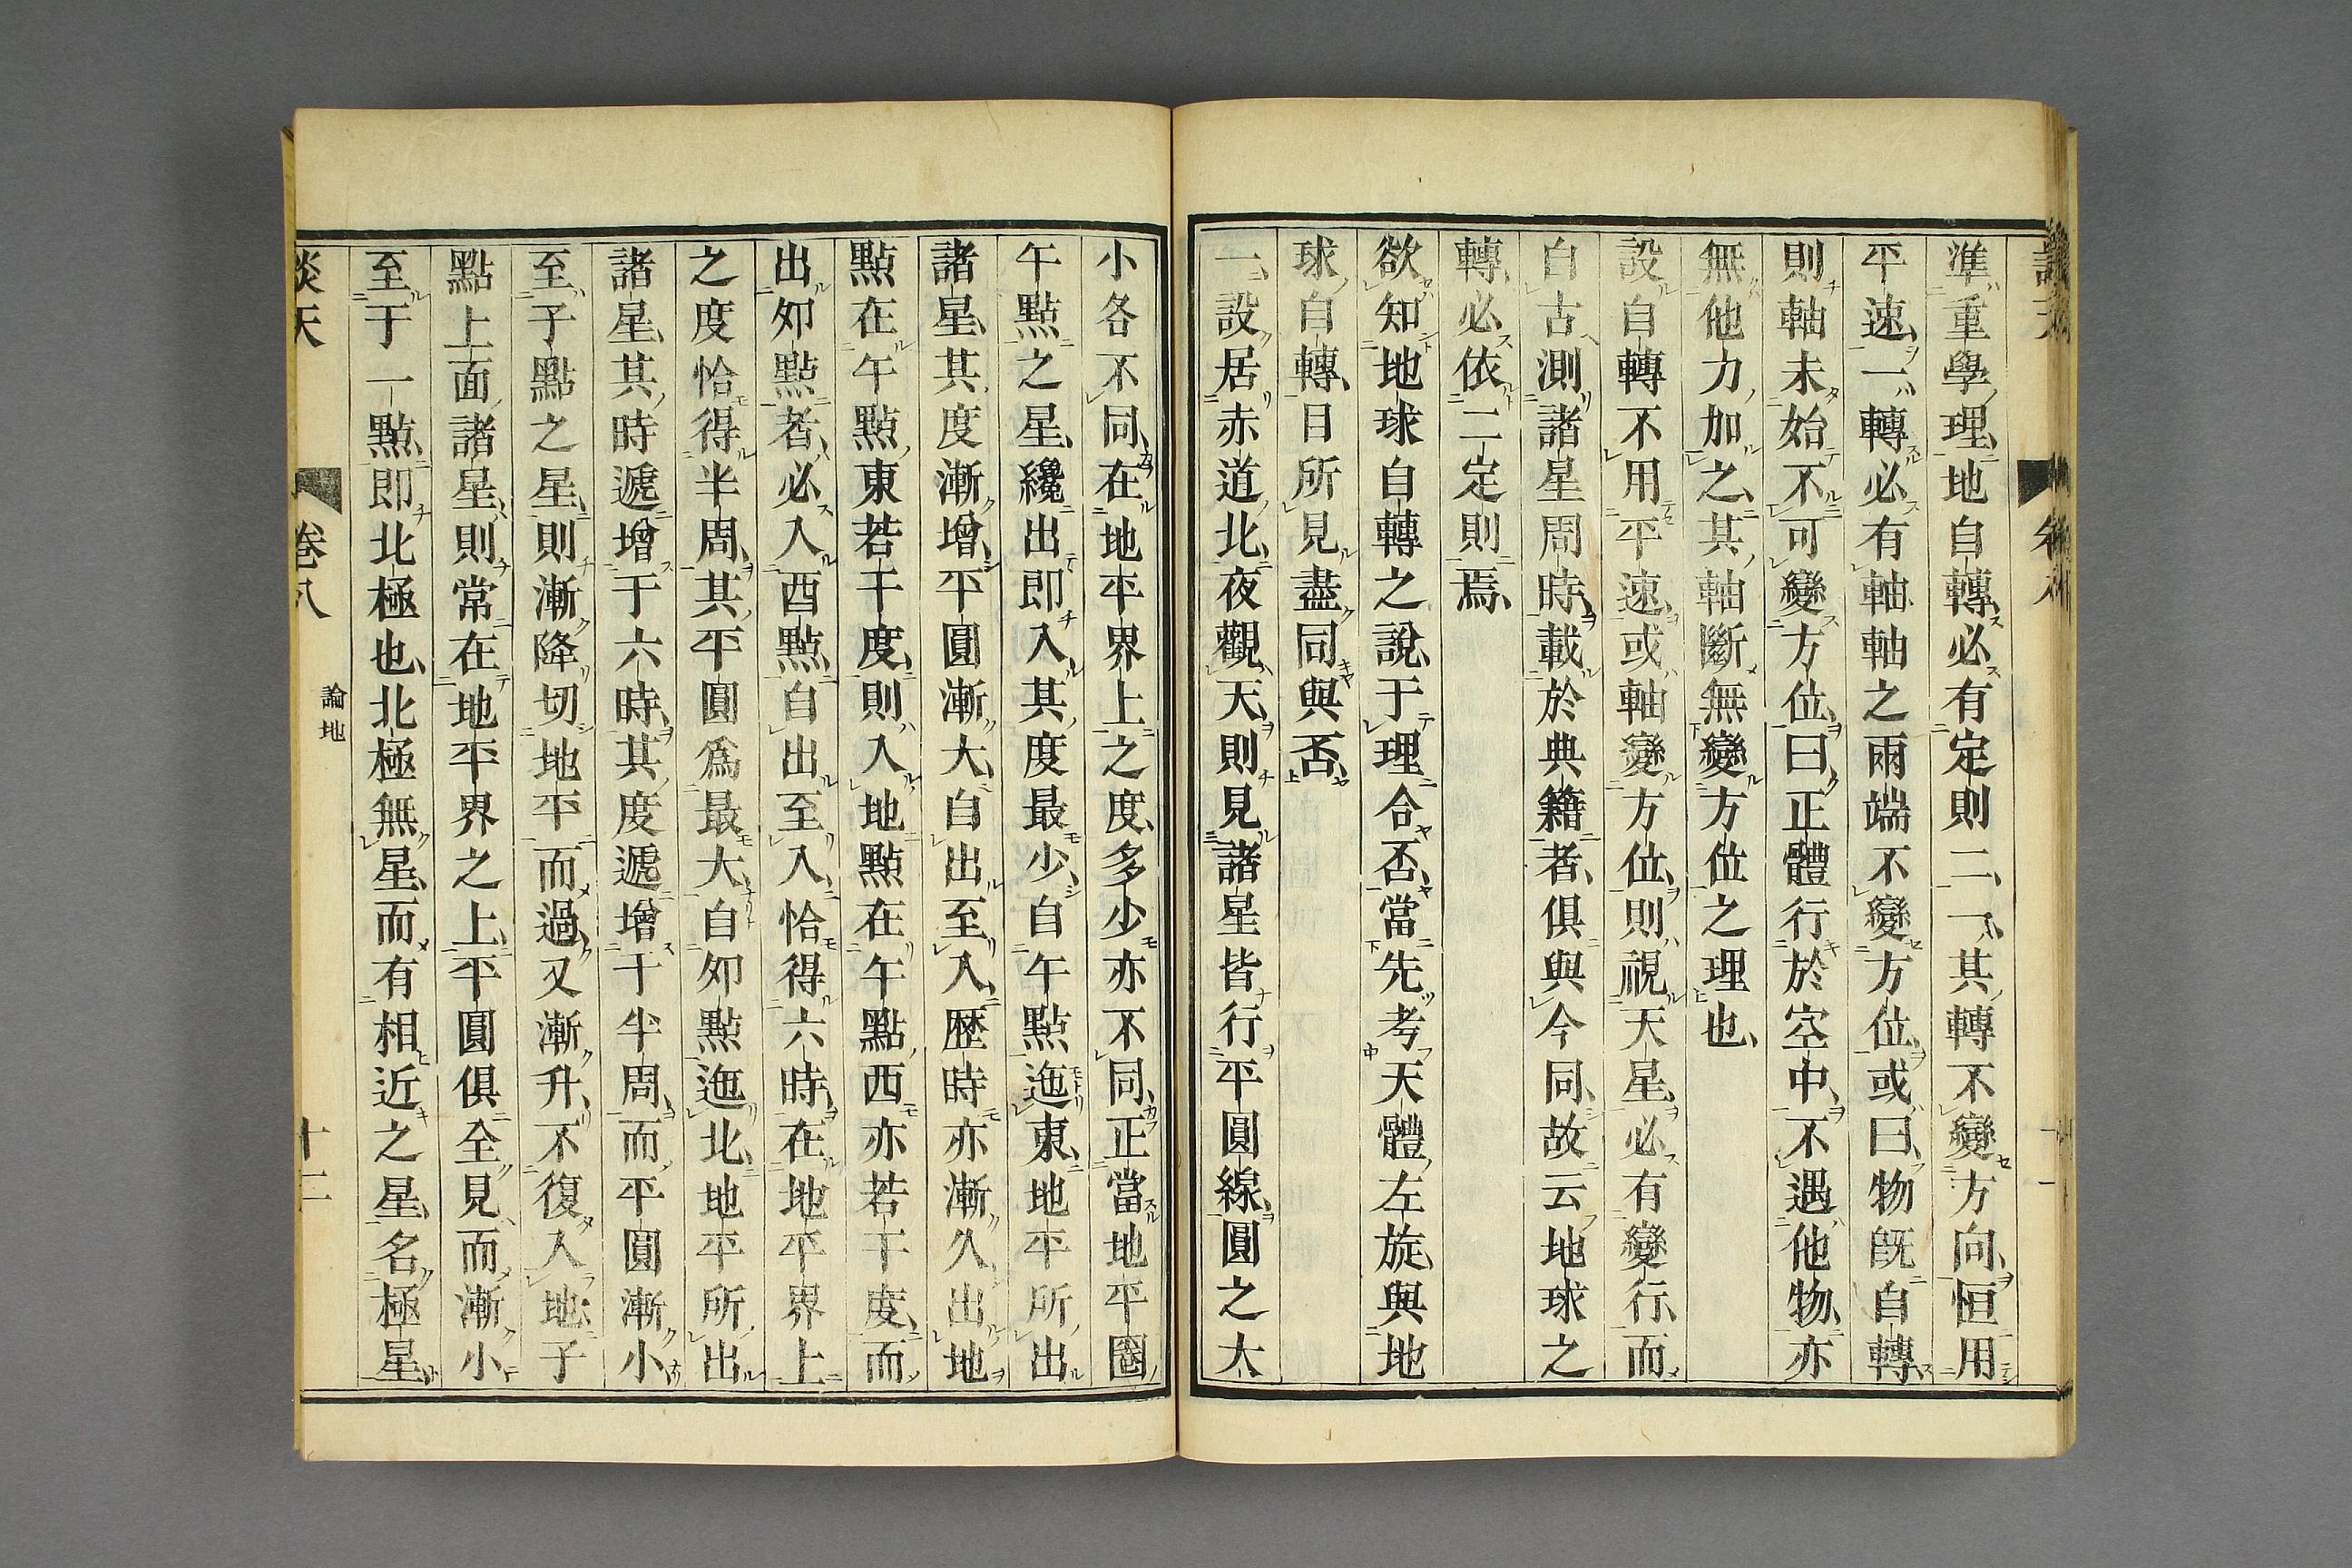 準重學理、地自轉、必有定則二、一、其轉不變方向、恒用
平速、一轉必有軸、軸之兩端不變方位、或曰、物旣自轉、
則軸未始不可變方位、曰、正體行於空中、不遇他物、亦
無他力加之、其軸斷無變方位之理也、
設自轉不用平速、或軸變方位、則視天星、必有變行、而
自古測諸星周時、載於典籍者、俱與今同、故云地球之
轉、必依二定則焉、
欲知地球自轉之說、于理合否、當先考天體左旋、與地
球自轉、目所見盡同與否、
一、設居赤道北、夜觀天、則見諸星皆行平圓線、圓之大
小各不同、在地平界上之度、多少亦不同、正當地平圈
午點之星、纔出即入、其度最少、自午點迤東、地平所出
諸星、其度漸增、平圓漸大、自出至入、歴時亦漸久、出地
點在午點東若干度、則入地點在午點西亦若干度、而
出卯點者、必入酉點、自出至入、恰得六時、在地平界上
之度恰得半周、其平圓爲最大、自卯點迤北、地平所出
諸星、其時遞增于六時、其度遞增于半周、而平圓漸小、
至子點之星、則漸降切地平、而過、又漸升、不復入地、子
點上面諸星、則常在地平界之上、平圓俱全見、而漸小
至于一點、即北極也、北極無星、而有相近之星、名極星、
談天 卷八 論地 十二